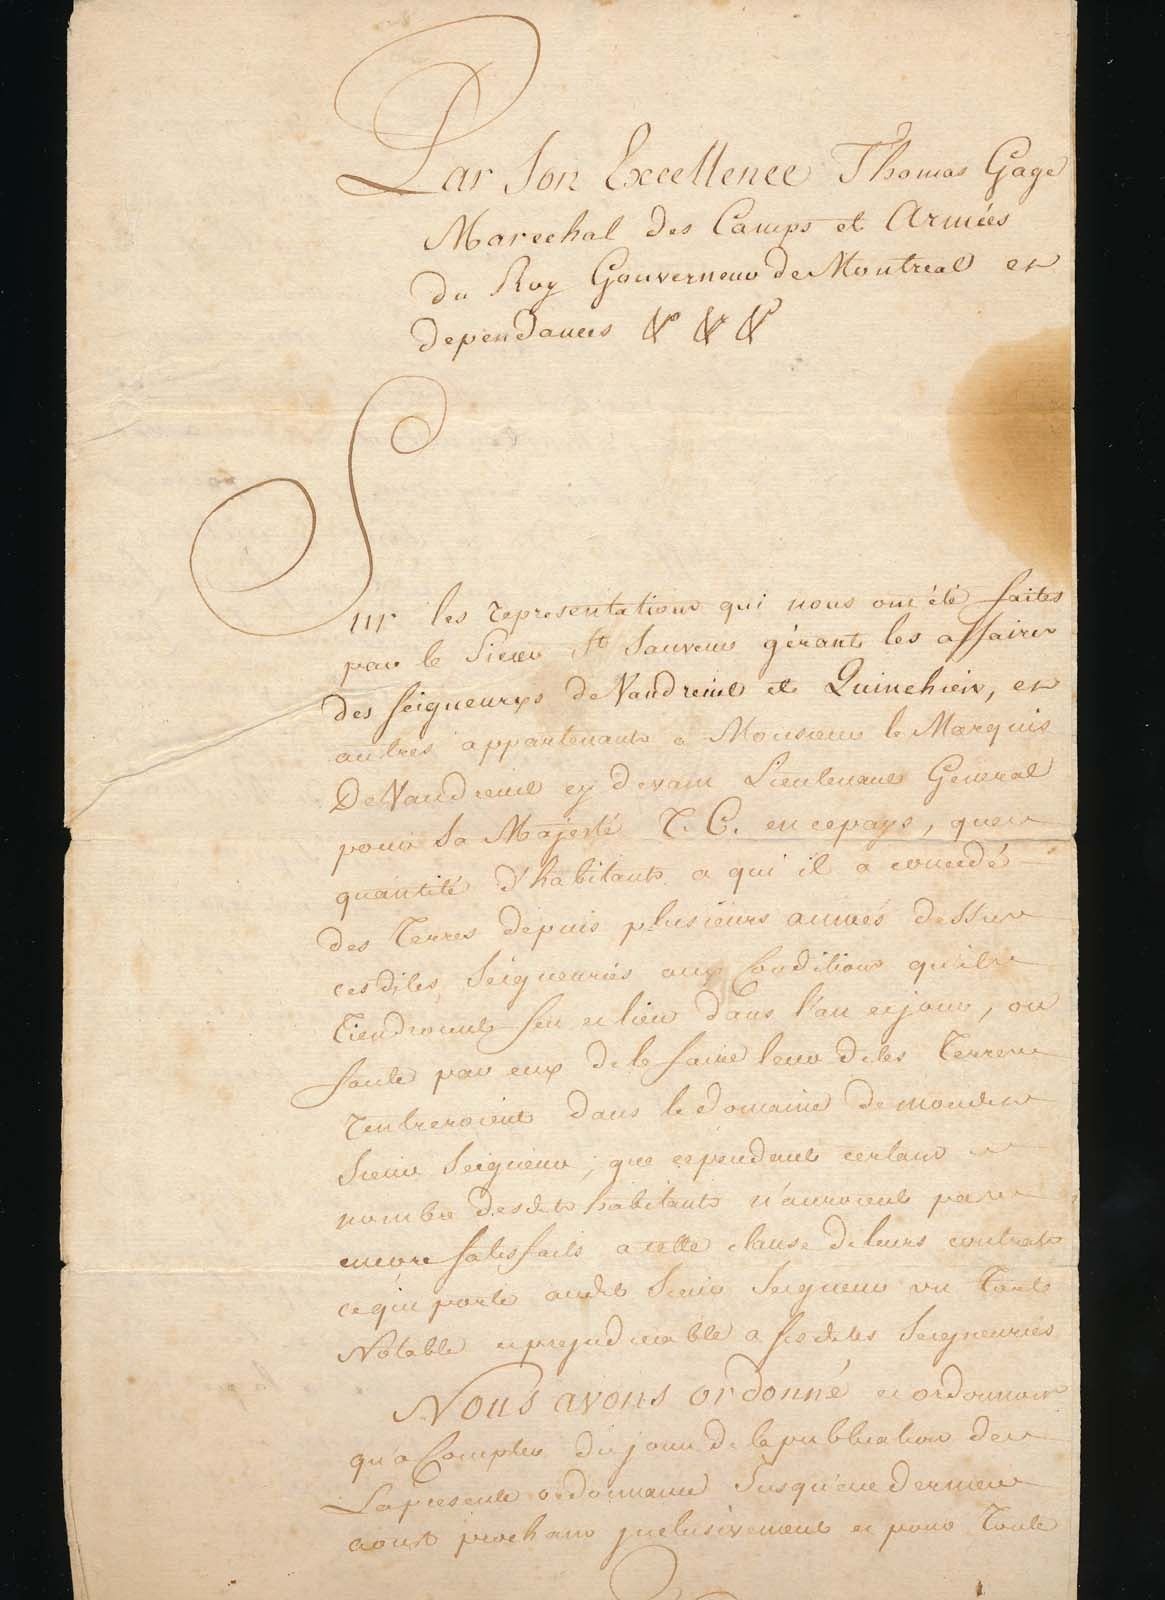 Par Son Excellence Thomas Gage
Marechal des Camps et Armées
du Roy Gouverneur de Montreal et
dependances &c &c &c
Sur les representations qui nous ont été faites
par le Sieur St Sauveur gérant les affaires
des seigneurys de Vaudreuil et Quinchien, et
autres appartenants a Monsieur le Marquis
De Vaudreuil cy devant Lieutenant General
pour Sa Majesté T. C. en ce pays, que
quantité d'habitants a qui il a concedé
des Terres depuis plusieurs années dessus
ces dites Seigneuries aux Conditions qu'ils
Tiendroient feu et lieu dans l'an et jour, ou
faute par eux de le faire leur dites Terres
rentreroient dans le domaine de mondit
Sieur Seigneur; que cependant certain
nombre desdts habitants n'auroient pas
encore satisfaits a cette clause de leurs contrats
ce qui porte audit Sieur Seigneur un Tort
Notable et prejudiciable a ses dites Seigneuries
Nous avons ordonné et ordonnons
qu'a Compter du jour de la publication de
La presente ordonnance Jusqu'au dernier
aoust prochain inclusivement et pour Toute